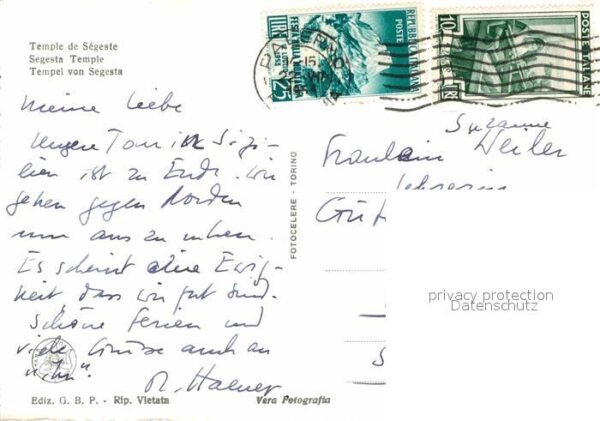 Temple de Ségeste
Segesta Temple
Tempel von Segesta
Meine Liebe
Unsere Tour in Sizi-
lien ist zu Ende. Wir
gehen gegen Norden
um aus zu ruhen.
Es scheint eine Ewig-
keit dass wir fort sind.
Schöne Ferien und
viele Grüsse auch an
"ihn"
Ediz. G. B. P. - Rip. Vietata
Vera Fotografia
FOTOCELERE - TORINO
REPUBBLICA ITALIANA
POSTE
LIRE 25
10
POSTE ITALIANE
Suzanne
Fräulein Weiler
Lehrerin
privacy protection
Datenschutz